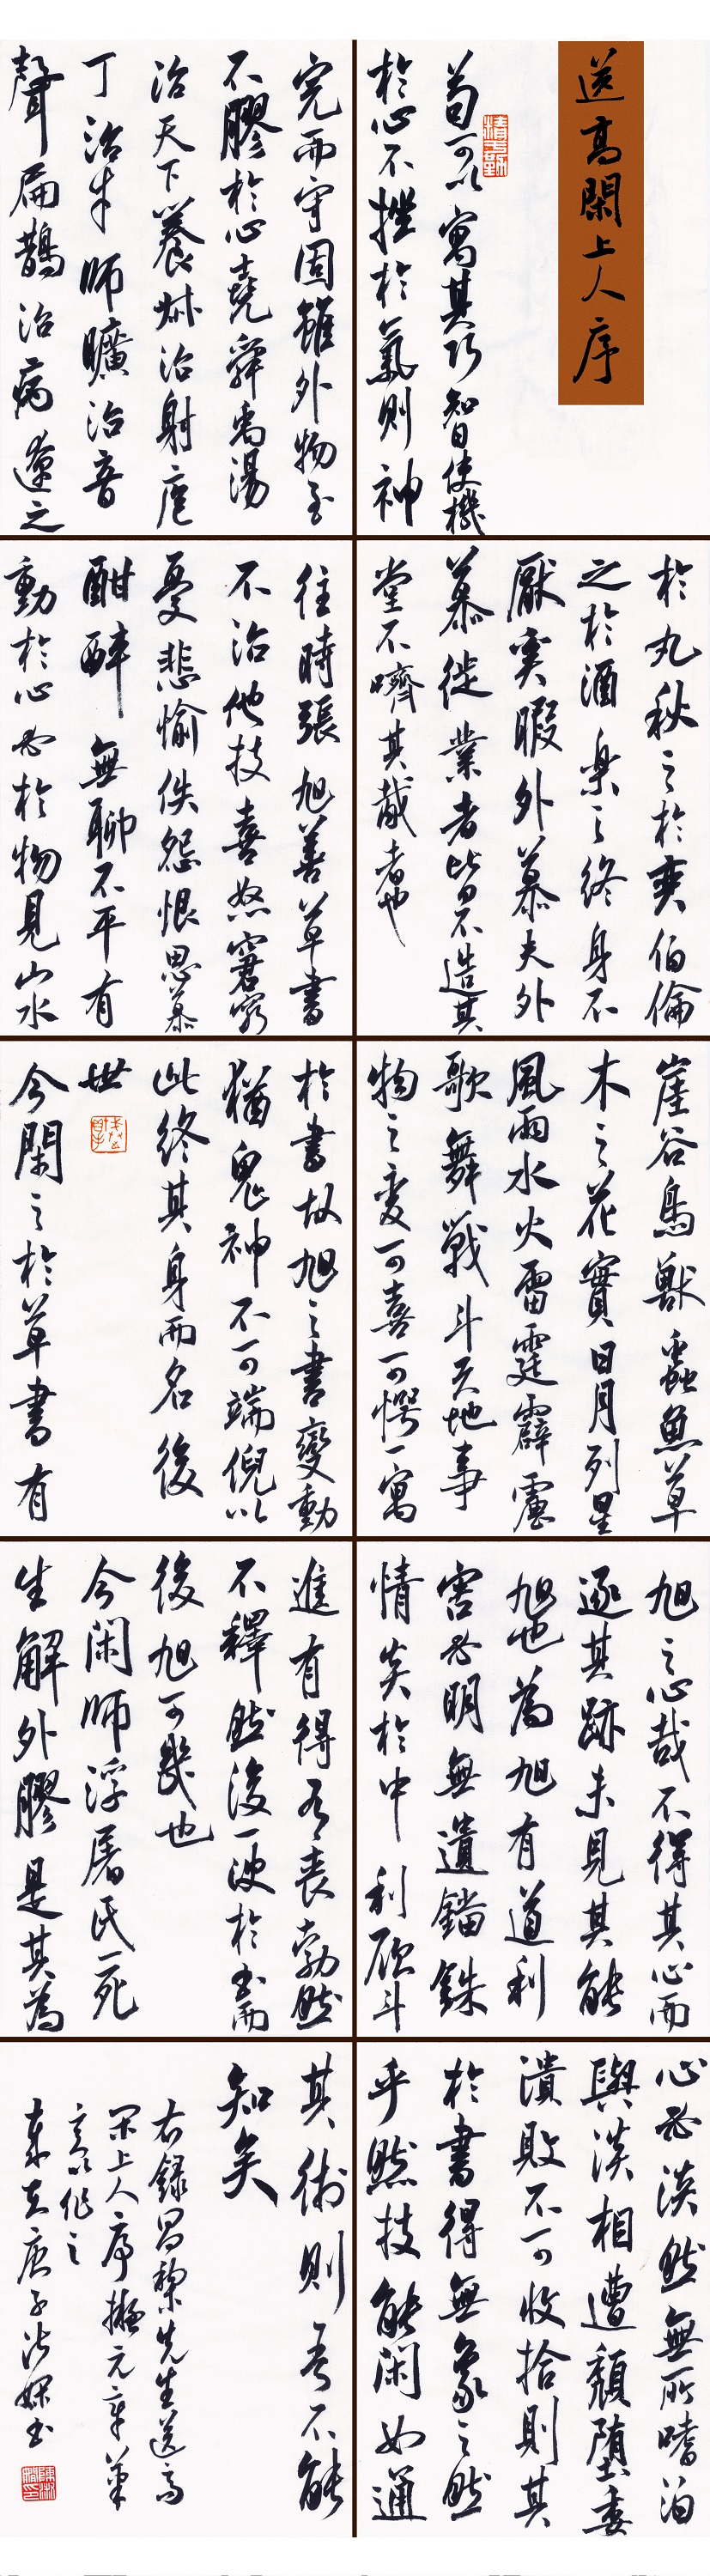 送高閑上人序
苟可以寓其巧智使機
於心不挫於氣則神
完而守固雖外物至
不膠於心堯舜禹湯
治天下養叔治射庖
丁治牛師曠治音
聲扁鵲治病遼之
於丸秋之於奕伯倫
之於酒樂之終身不
厭奚暇外慕夫外
慕徙業者皆不造其
堂不嚌其胾者也
往時張旭善草書
不治他技喜怒窘窮
憂悲愉佚怨恨思慕
酣醉無聊不平有
動於心必於物見山水
崖谷鳥獸蟲魚草
木之花實日月列星
風雨水火雷霆霹靂
歌舞戰斗天地事
物之變可喜可愕一寓
於書故旭之書變動
猶鬼神不可端倪以
此終其身而名後
世
今閑之於草書有
旭之心哉不得其心而
逐其跡未見其能
旭也為旭有道利
害必明無遺錙銖
情炎於中利欲斗
進有得有喪勃然
不釋然後一決於書而
後旭可幾也
今閑師浮屠氏一死
生解外膠是其為
心必淡然無所嗜泊
與淡相遭頹堕委
潰敗不可收拾則其
於書得無象之然
乎然技能閑如通
其術則吾不能
知矣
右錄昌黎先生送高
閑上人序擬元章筆
意以作之